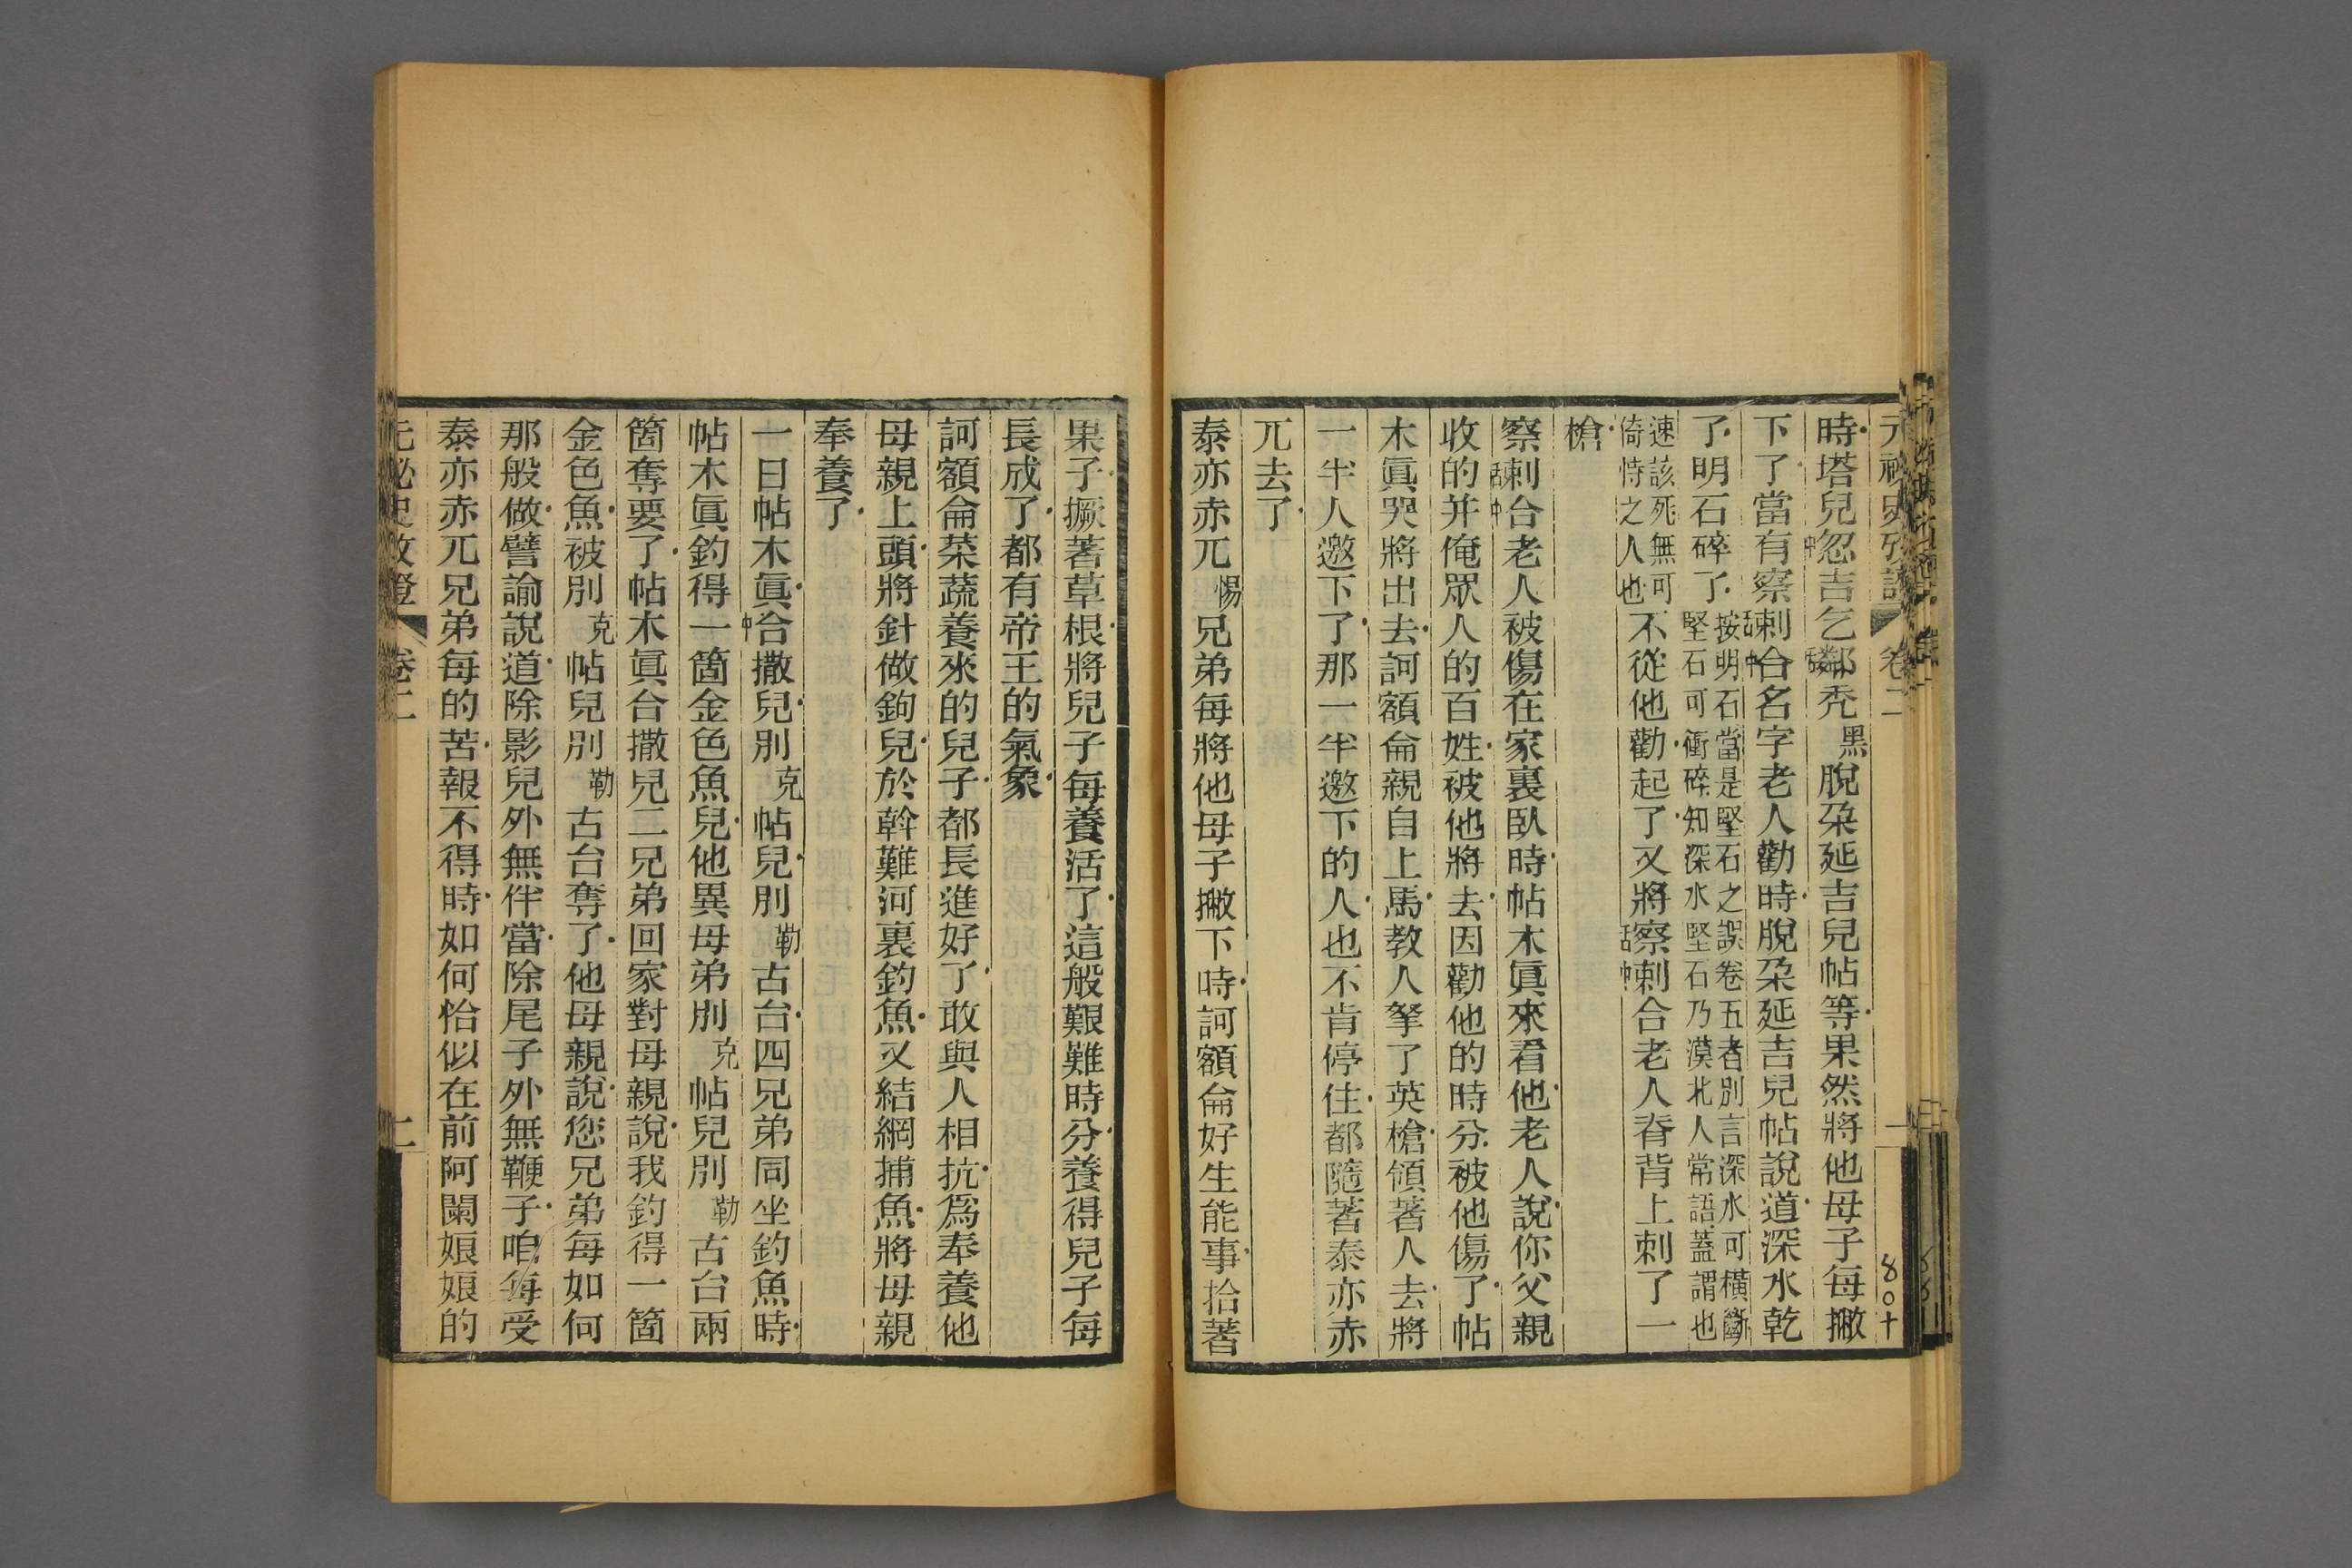 元秘史攷證 卷二 一
時塔兒中忽吉乞舌鄰禿黑脫朶延吉兒帖等果然將他母子每撇
下了當有察舌剌中合名字老人勸時脫朶延吉兒帖說道深水乾
了明石碎了按明石當是堅石之誤卷五者別言深水可橫斷堅石可衝碎知深水堅石乃漠北人常語蓋謂也
速該死無可倚恃之人也不從他勸起了又將察舌剌中合老人脊背上刺了一
槍
察舌剌中合老人被傷在家裏臥時帖木眞來看他老人說你父親
收的并俺眾人的百姓被他將去因勸他的時分被他傷了帖
木眞哭將出去訶額侖親自上馬教人拏了英槍領著人去將
一半人邀下了那一半邀下的人也不肯停住都隨著泰亦赤
兀去了
泰亦赤兀惕兄弟每將他母子撇下時訶額侖好生能事拾著
果子撅著草根將兒子每養活了這般艱難時分養得兒子每
長成了都有帝王的氣象
訶額侖菜蔬養來的兒子都長進好了敢與人相抗爲奉養他
母親上頭將針做鉤兒於斡難河裏釣魚又結網捕魚將母親
奉養了
一日帖木眞中合撒兒別克帖兒別勒古台四兄弟同坐釣魚時
帖木眞釣得一箇金色魚兒他異母弟別克帖兒別勒古台兩
箇奪要了帖木眞合撒兒二兄弟回家對母親說我釣得一箇
金色魚被別克帖兒別勒古台奪了他母親說您兄弟每如何
那般做譬諭說道除影兒外無伴當除尾子外無鞭子咱每受
泰亦赤兀兄弟每的苦報不得時如何恰似在前阿闌娘娘的
元祕史攷證 卷二 二